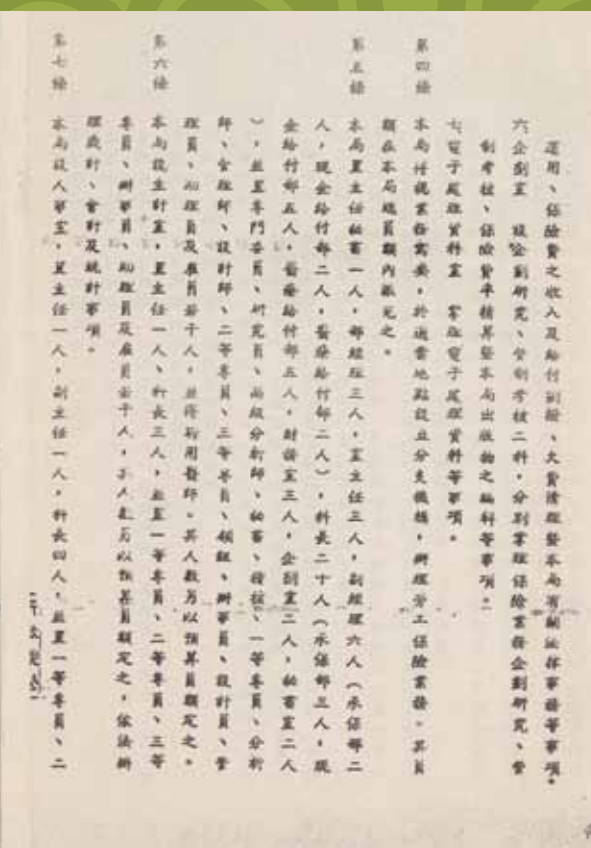 運用、保險費之收入及給付劃撥、欠費清理暨本局有關法律事務等事項。
六、企劃室　設企劃研究、管制考核二科,分別掌理保險業務企劃研究、管
制考核、保險費率精算暨本局出版物之編科等事項。
七、電子處理資料室　掌理電子處理資料等事項。
第四條　本局付視業務需要,於適當地點設立分支機構,辦理勞工保險業務。其員
額在本局總員額內派充之。
第五條　本局置主任秘書一人,部經理三人,室主任三人,副經理六人(承保部二
人,現金給付部二人,醫療給付部二人),科長二十人(承保部三人,現
金給付部五人,醫療給付部五人,財務室三人,企劃室二人,秘書室二人
),並置專門委員、研究員、高級分析師、秘書、稽核、一等專員、分析
師、管理師、設計師、二等專員、三等專員、領組、辦事員、設計員、管
理員、助理員及雇員若干人,並得聘用醫師。其人數另以預算員額定之。
第六條　本局設主計室,置主任一人、科長三人,並置一等專員、二等專員、三等
專員、辦事員、助理員及雇員若干人,其人數另以預算員額定之,依法辦
理歲計、會計及統計事項。
第七條　本局設人事室,置主任一人,副主任一人,科長四人,並置一等專員、二